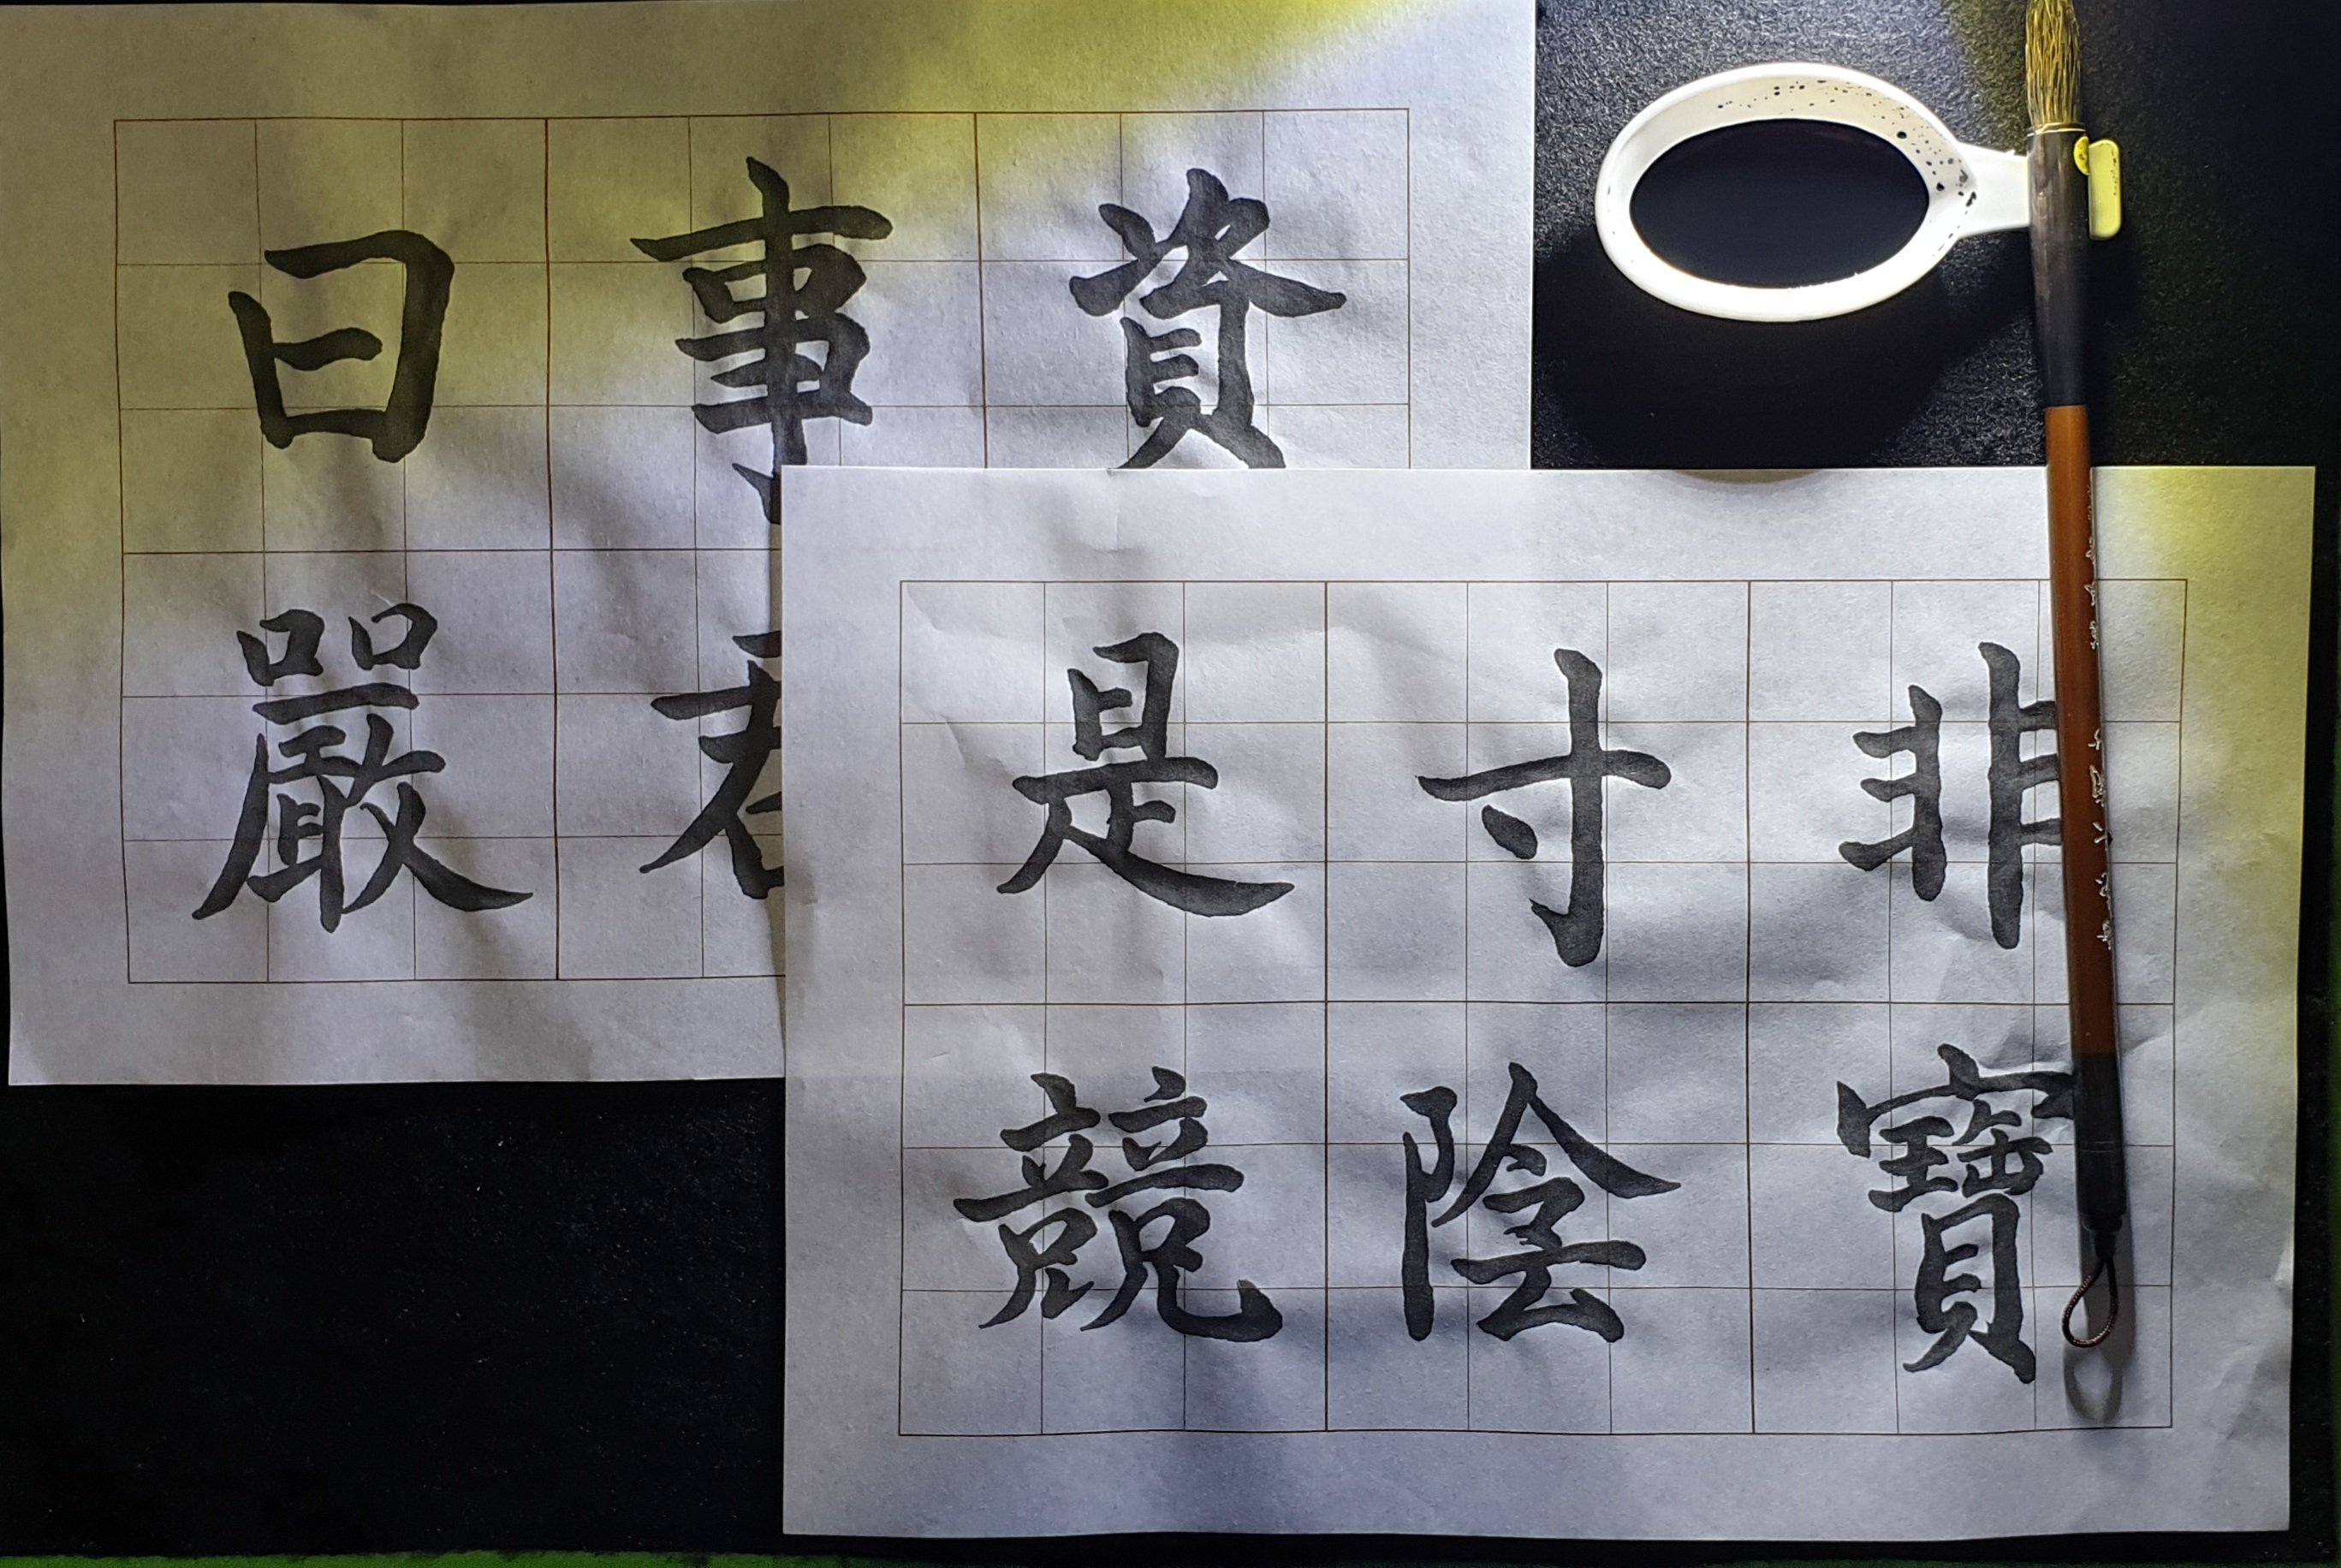 非寶
寸陰
是競
資
事君
曰嚴